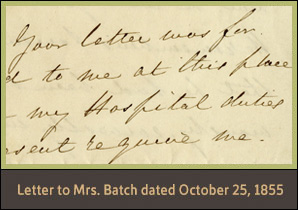 Your letter was for
d to me at this place
my Hospital duties
sent require me.
Letter to Mrs. Batch dated October 25, 1855